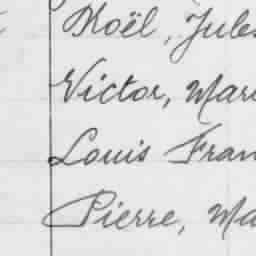 Noël, Jules
Victor, Mar
Louis Fran
Pierre, Ma